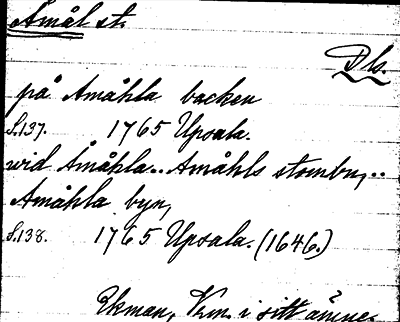 Åmål st.
Dls.
på Amåhla backen
S.137. 1765 Upsala.
wid Åmåhla..Amåhls stombn,..
Amåhla byn,
S.138. 1765 Upsala. (1646.)
Ekman, Vm. i sitt ämne